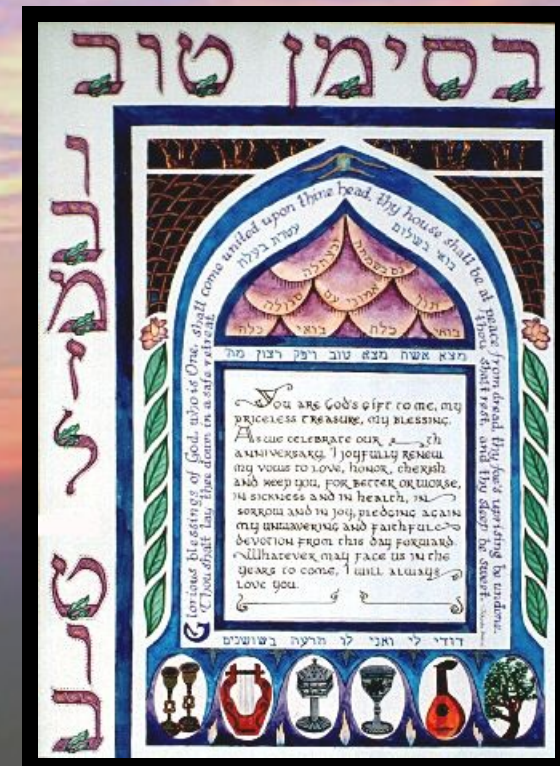 בסימן טוב
ובמזל טוב
Glorious blessings of God, who is One, shall come united upon thine head, thy house shall be at peace from dread, thy foe's uprising be undone.
Thou shalt lay thee down in a safe retreat.
Thou shalt rest, and thy sleep be sweet.
בואי בשלום
עטרת בעלה
גם בשמחה
ובצהלה
תוך
אמוני עם
סגולה
בואי כלה בואי כלה
מצא אשה מצא טוב ויפק רצון מה'
You are God's gift to me, my
priceless treasure, my blessing.
As we celebrate our th
anniversary, I joyfully renew
my vows to love, honor, cherish
and keep you, for better or worse,
in sickness and in health, in
sorrow and in joy, pledging again
my unwavering and faithful
devotion from this day forward.
Whatever may face us in the
years to come, I will always
love you.
דודי לי ואני לו הרעה בשושנים